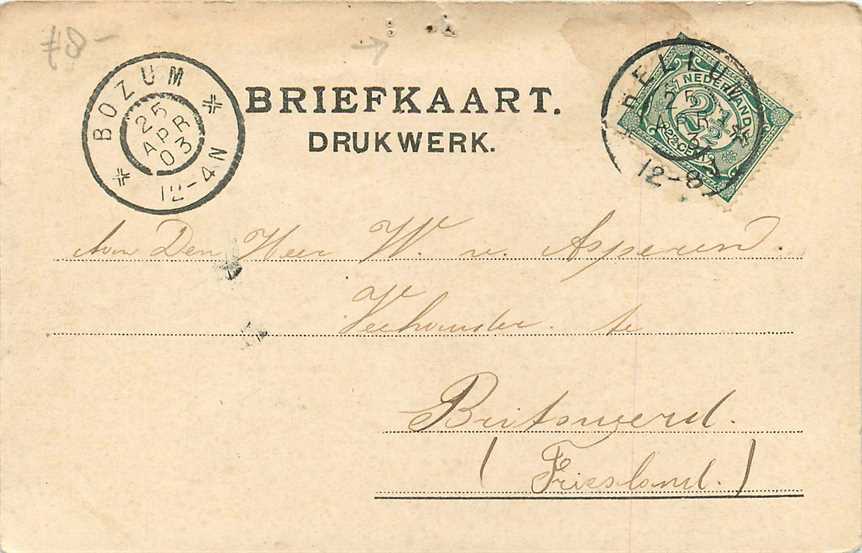 #8-
BOZUM
25
APR
03
12-4N
BRIEFKAART.
DRUKWERK.
NEDERLAND
2½
Aan Den Heer W. v. Asperen.
Veehouder te
Britswerd.
(Friesland.)